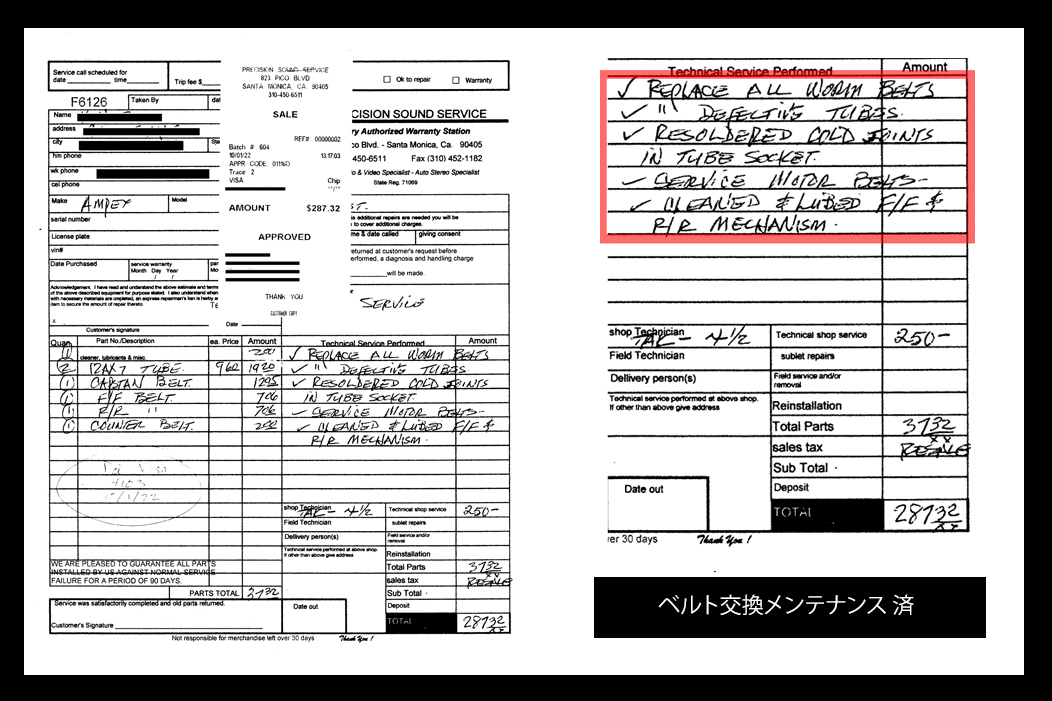 PRECISION SOUND SERVICE
823 PICO BLVD
SANTA MONICA CA. 90405
310-450-6511
SALE
REF# 00000002
Batch # 604
10/01/22 13:17:03
APPR CODE: 01116D
Trace: 2
VISA Chip
**/**
AMOUNT $287.32
APPROVED
THANK YOU
CUSTOMER COPY
Service call scheduled for
date time Trip fee $
Ok to repair Warranty
F6126 Taken By
Name
address
city
hm phone
wk phone
cel phone
CISION SOUND SERVICE
ry Authorized Warranty Station
co Blvd. - Santa Monica, Ca. 90405
450-6511 Fax (310) 452-1182
o & Video Specialist - Auto Stereo Specialist
State Reg. 71069
Make AMPEX Model
serial number
License plate
vin#
Date Purchased service warranty
Month Day Year
ST.
is additional repairs are needed you will be
to cover additional charges.
me & date called giving consent
returned at customer's request before
erformed, a diagnosis and handling charge
will be made.
SERVICE
Acknowledgement. I have read and understand the above estimate and terms
of the above described equipment for purpose stated. I also understand when
x
Customer's signature Date
Quan. Part No./Description ea. Price Amount Technical Service Performed Amount
1 cleaner, lubricants & misc. 200 ✓ REPLACE ALL WORM BELTS
2 12AX7 TUBE. 960 1920 ✓ " DEFECTIVE TUBES.
1 CAPSTAN BELT. 1295 ✓ RESOLDERED COLD JOINTS
1 F/F BELT. 706 IN TUBE SOCKET.
1 R/R " 706 ✓ SERVICE MOTOR BELTS-
1 COUNTER BELT. 200 ✓ CLEANED & LUBED F/F &
R/R MECHANISM.
shop Technician TAK- 4 1/2 Technical shop service 250-
Field Technician sublet repairs
Dellivery person(s) Field service and/or
removal
Technical service performed at above shop.
If other than above give address
Reinstallation
Total Parts 3732
sales tax RESALE
Sub Total
Deposit
TOTAL 28732
WE ARE PLEASED TO GUARANTEE ALL PARTS
INSTALLED BY US AGAINST NORMAL SERVICE
FAILURE FOR A PERIOD OF 90 DAYS.
PARTS TOTAL
Service was satisfactorily completed and old parts returned.
Customer's Signature
Date out
Not responsible for merchandise left over 30 days Thank You !
Technical Service Performed Amount
✓ REPLACE ALL WORM BELTS
✓ " DEFECTIVE TUBES.
✓ RESOLDERED COLD JOINTS
IN TUBE SOCKET.
✓ SERVICE MOTOR BELTS-
✓ CLEANED & LUBED F/F &
R/R MECHANISM.
shop Technician TAK- 4 1/2 Technical shop service 250-
Field Technician sublet repairs
Dellivery person(s) Field service and/or
removal
Technical service performed at above shop.
If other than above give address
Reinstallation
Total Parts 3732
sales tax RESALE
Sub Total
Deposit
Date out
TOTAL 28732
er 30 days Thank You !
ベルト交換メンテナンス 済